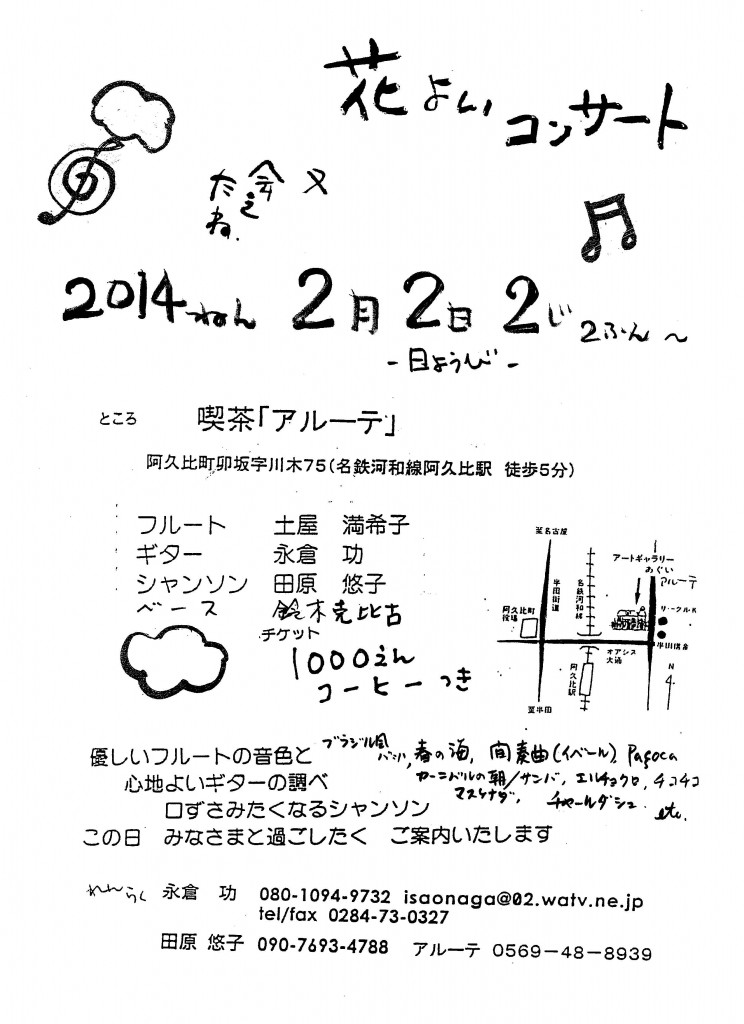 花よい コンサート
又
会え
たね.
2014ねん 2月2日 2じ 2ふん～
-日ようび-
ところ 喫茶「アルーテ」
阿久比町卯坂字川木75(名鉄河和線阿久比駅 徒歩5分)
フルート 土屋 満希子
ギター 永倉 功
シャンソン 田原 悠子
ベース 鈴木克比古
チケット
1000えん
コーヒーつき
至名古屋
半田街道
名鉄河和線
アートギャラリー
あぐい
アルーテ
サークルK
阿久比町
役場
半田信金
オアシス
大通
阿久比駅
N
至半田
優しいフルートの音色と
心地よいギターの調べ
口ずさみたくなるシャンソン
この日 みなさまと過ごしたく ご案内いたします
ブラジル風
バッハ, 春の海, 間奏曲(イベール), Pagoca
カーニバルの朝/サンバ, エルチョクロ, チコチコ
マスケナダ, チャールダシュ. etc.
れんらく 永倉 功 080-1094-9732 isaonaga@02.watv.ne.jp
tel/fax 0284-73-0327
田原 悠子 090-7693-4788 アルーテ 0569-48-8939